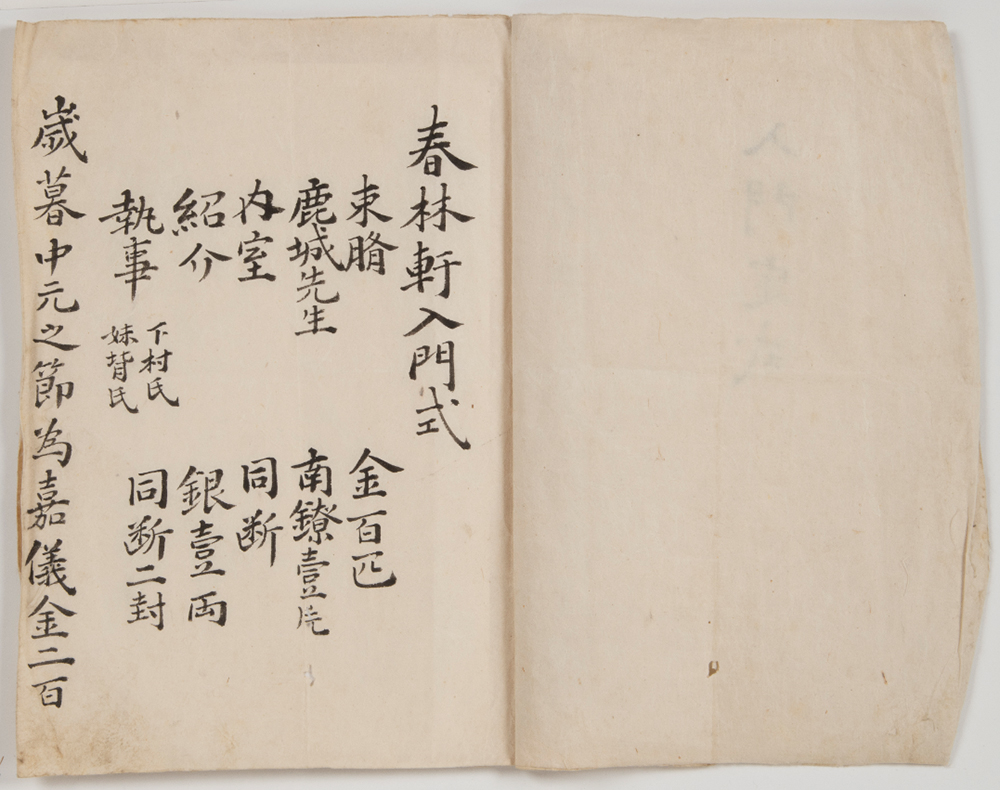 春林軒入門式
束脩 金百匹
鹿城先生 南鐐壹片
内室 同断
紹介 銀壹両
執事 下村氏 妹背氏 同断二封
歳暮中元之節為嘉儀金二百